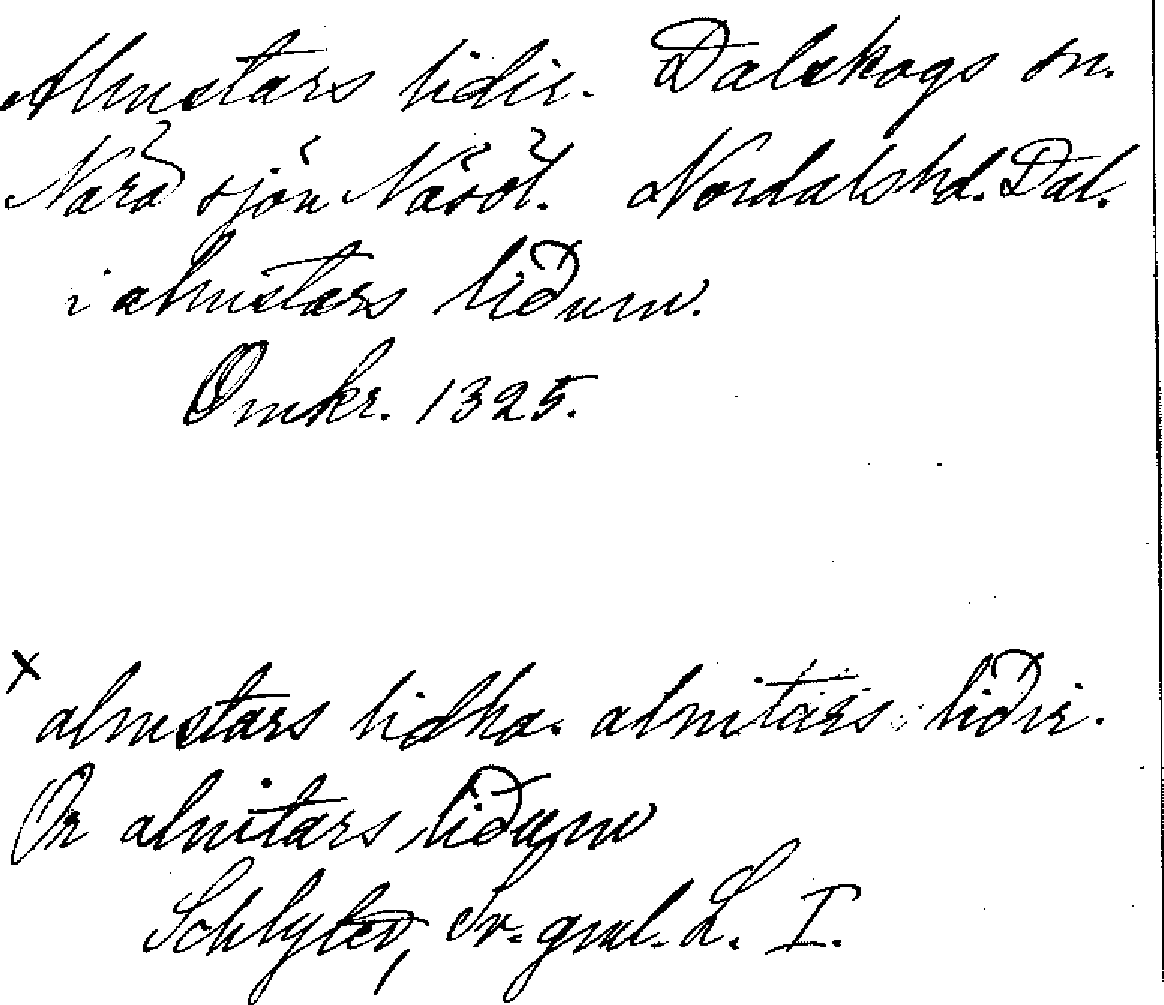 Almstars lidir. Dalskogs sn.
Nära sjön Näsöl. Nordalshd. Dal.
i almstars liðum.
Omkr. 1325.
x
almstars lidha. alnitars liðir.
Or alnitars liðum
Schlyter, Sv. gml. L. I.